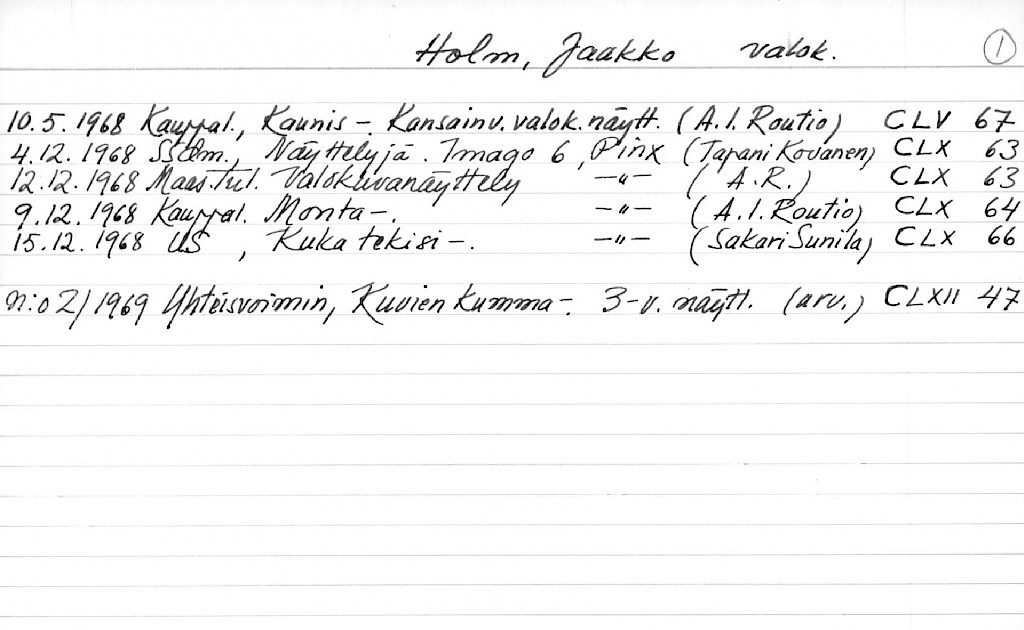 Holm, Jaakko valok. 1
10.5.1968 Kauppal., Kaunis -. Kansainv. valok. näytt. (A.I. Routio) CLV 67
4.12.1968 SSdm., Näyttelyjä. Imago 6, Pinx (Tapani Kovanen) CLX 63
12.12.1968 Maas.Tul. Valokuvanäyttely —"— (A.R.) CLX 63
9.12.1968 Kauppal. Monta -. —"— (A.I. Routio) CLX 64
15.12.1968 US, Kuka tekisi -. —"— (Sakari Sunila) CLX 66
n:o 2/1969 Yhteisvoimin, Kuvien kumma -. 3-v. näytt. (arv.) CLXII 47